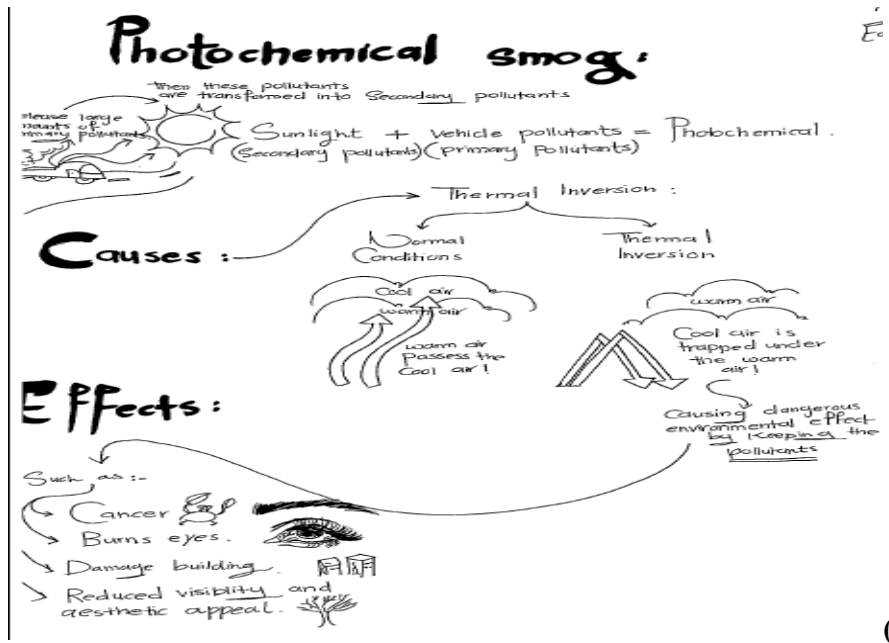 Photochemical smog:
Then these pollutants
are transformed into Secondary pollutants
large
of
pollutants
Sunlight + vehicle pollutants = Photochemical.
(Secondary pollutants) (primary pollutants)
Thermal Inversion :
Causes :-
Normal
Conditions
Thermal
Inversion
Cool air
warm air
warm air
passess the
Cool air!
warm air
Cool air is
trapped under
the warm
air!
Causing dangerous
environmental effect
by keeping the
pollutants
Effects:
Such as:-
Cancer
Burns eyes.
Damage building.
Reduced visiblity and
aesthetic appeal.